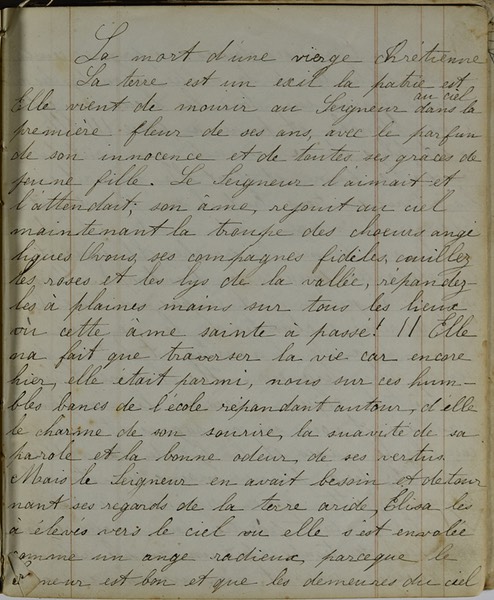 La mort d'une vierge Chrétienne
La terre est un exil la patrie est
au ciel
Elle vient de mourir au Seigneur dans la
première fleur de ses ans, avec le parfun
de son innocence et de toutes ses grâces de
jeune fille. Le Seigneur l'aimait et
l'attendait; son âme, rejouit au ciel
maintenant la troupe des choeurs angé
liques O vous, ses compagnes fidèles, cuillez
les roses et les lys de la vallée, répandez-
les à plaines mains sur tous les lieux
où cette âme sainte à passé! !! Elle
na fait que traverser la vie car encore
hier, elle était parmi, nous sur ces hum-
bles bancs de l'école répandant autour, d'elle
le charme de son sourire, la suavité de sa
parole et la bonne odeur, de ses vertus.
Mais le Seigneur en avait besoin et detour
nant ses regards de la terre aride, Elisa les
à élevés vers le ciel où elle s'est envolée
comme un ange radieux, parceque le
neur est bon et que les demeures du ciel